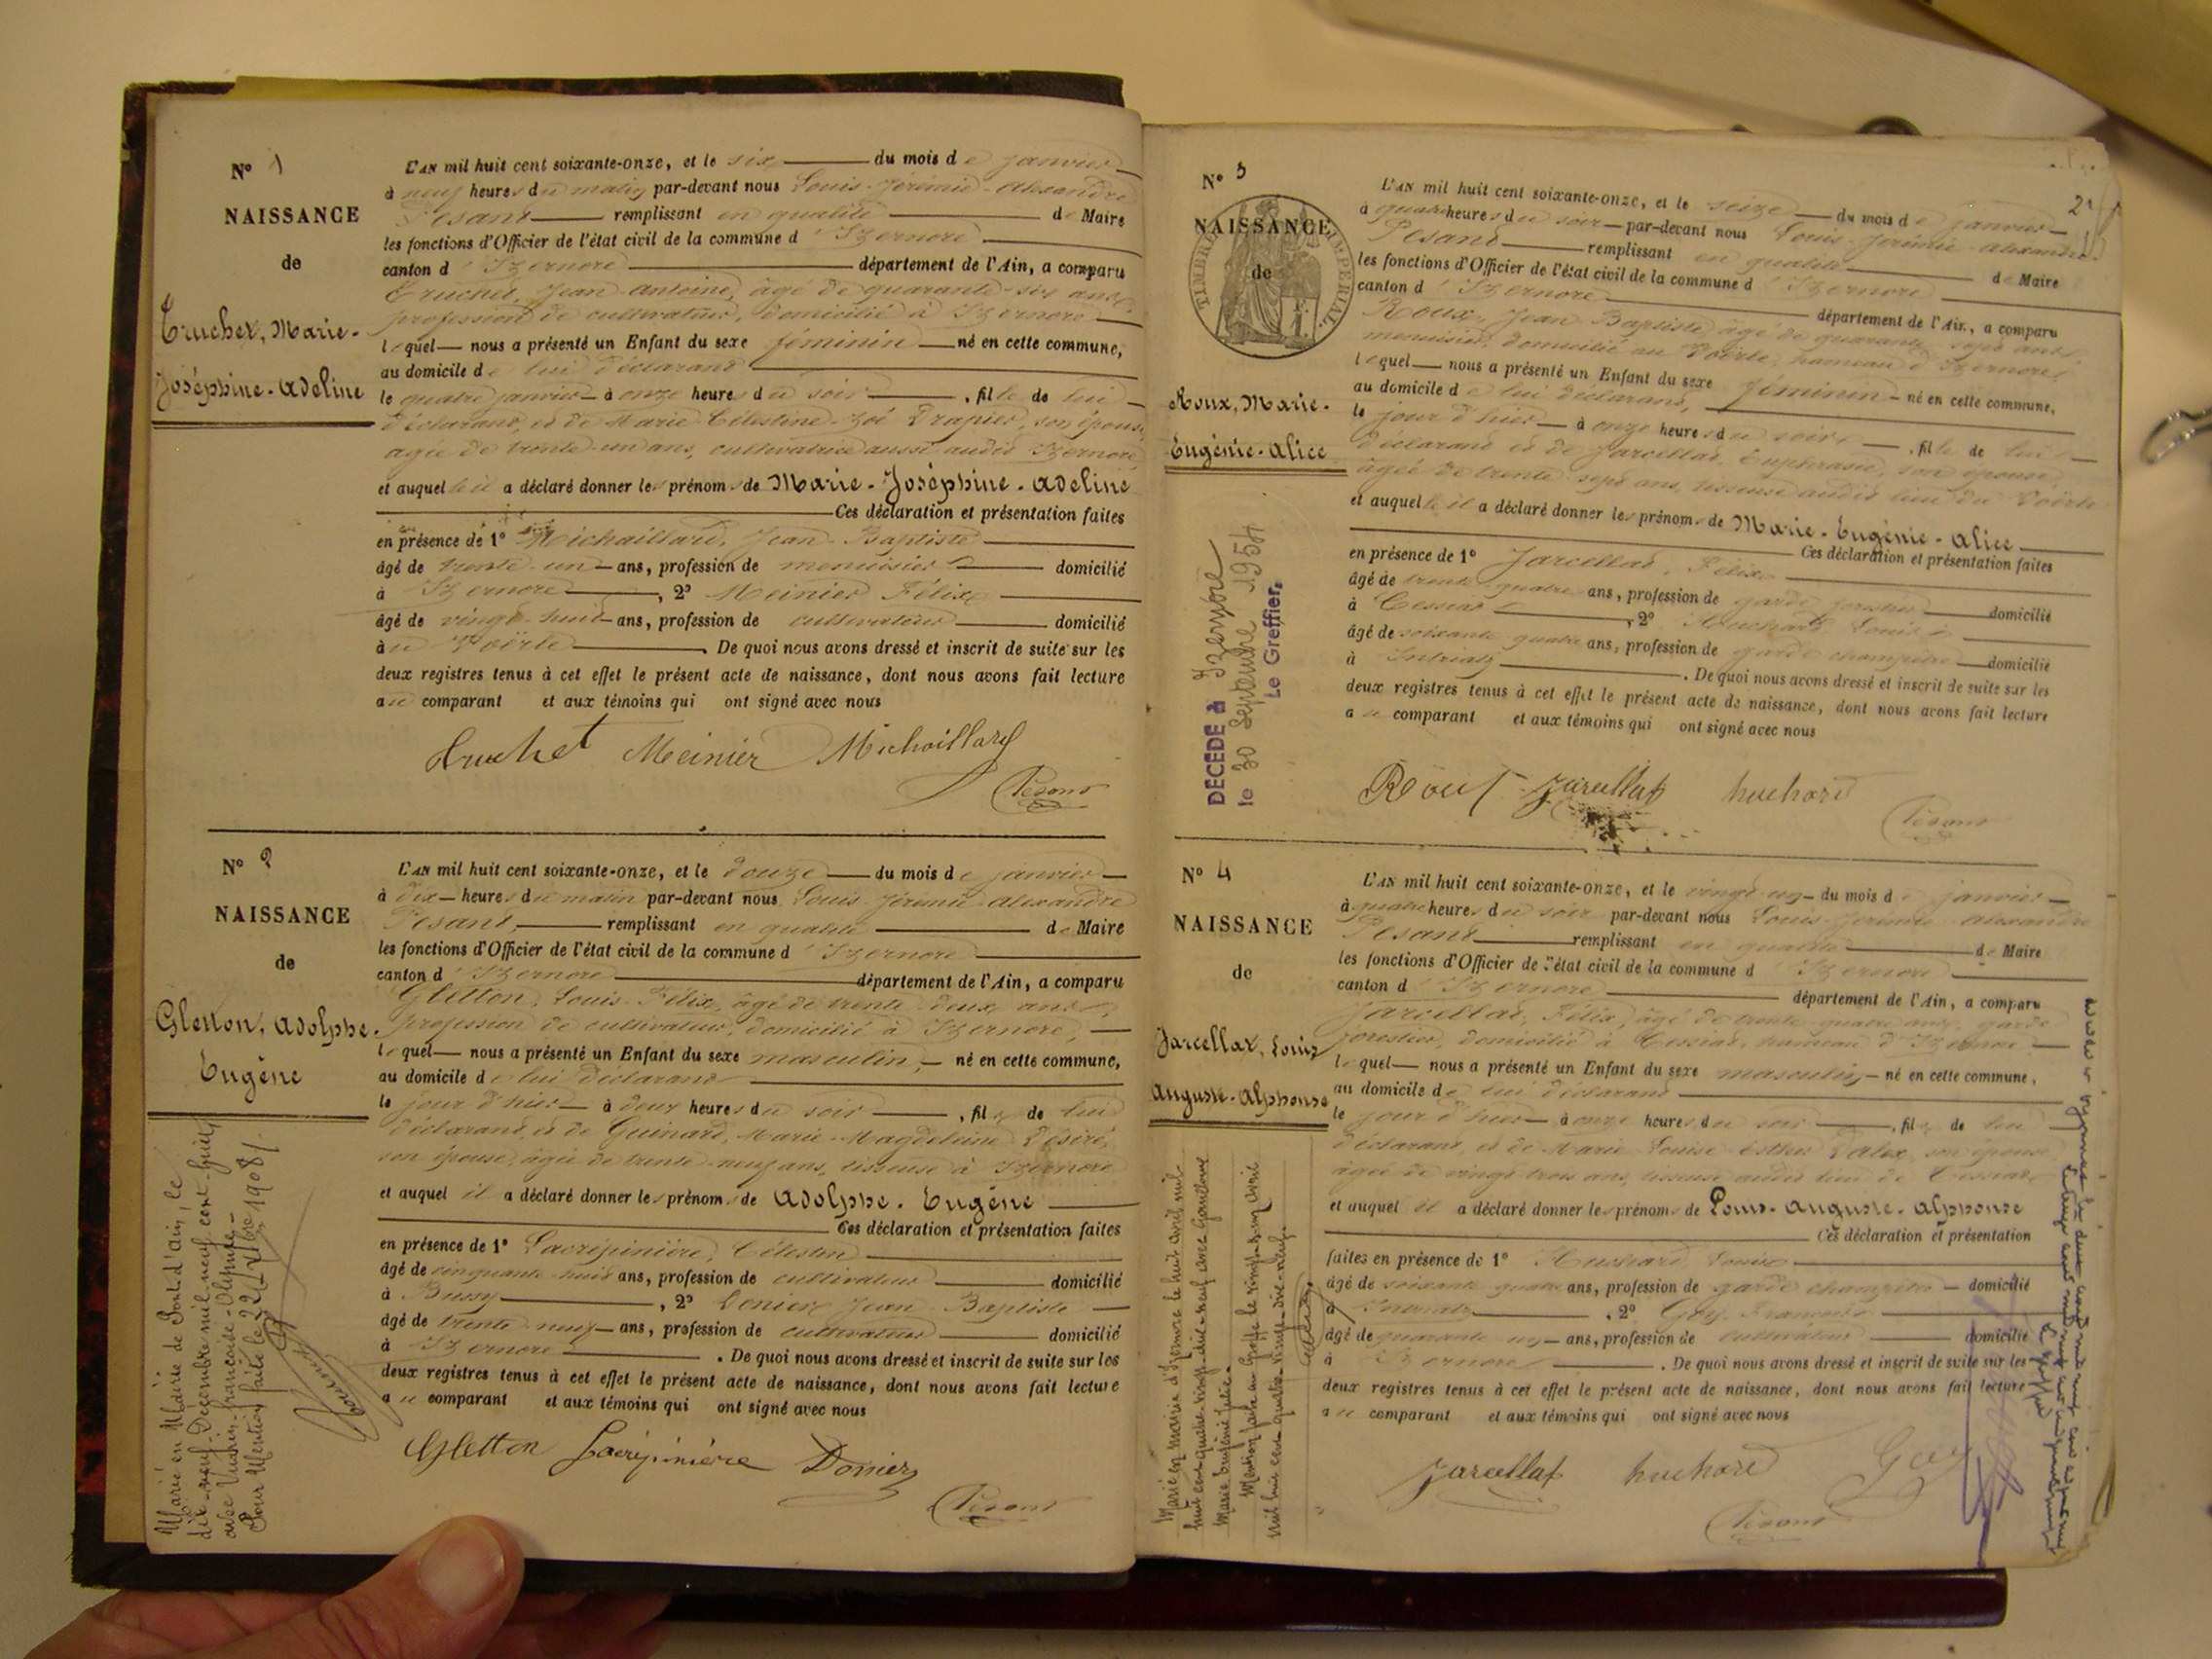 N° 1
NAISSANCE
de
Truchet, Marie-
Joséphine-Adeline
L'AN mil huit cent soixante-onze, et le six du mois de janvier
à neuf heures du matin par-devant nous Louis-Jérémie-Alexandre
Pesant remplissant en qualité de Maire
les fonctions d'Officier de l'état civil de la commune d'Izernore
canton d'Izernore département de l'Ain, a comparu
Truchet, Jean-Antoine, âgé de quarante-six ans,
profession de cultivateur, domicilié à Izernore
lequel nous a présenté un Enfant du sexe féminin né en cette commune,
au domicile de lui déclarant
le quatre janvier à onze heures du soir, fille de lui
déclarant, et de Marie Célestine Zoé Drapier, son épouse,
âgée de trente-un ans, cultivatrice aussi audit Izernore
et auquel il a déclaré donner les prénoms de Marie-Joséphine-Adeline
Ces déclaration et présentation faites
en présence de 1° Michaillard, Jean-Baptiste
âgé de trente-un ans, profession de menuisier domicilié
à Izernore, 2° Meinier Félix
âgé de vingt-huit ans, profession de cultivateur domicilié
au Voërle. De quoi nous avons dressé et inscrit de suite sur les
deux registres tenus à cet effet le présent acte de naissance, dont nous avons fait lecture
au comparant et aux témoins qui ont signé avec nous
Truchet Meinier Michaillard
Pesant
N° 2
NAISSANCE
de
Gletton, Adolphe-
Eugène
L'AN mil huit cent soixante-onze, et le douze du mois de janvier
à dix heures du matin par-devant nous Louis-Jérémie-Alexandre
Pesant, remplissant en qualité de Maire
les fonctions d'Officier de l'état civil de la commune d'Izernore
canton d'Izernore département de l'Ain, a comparu
Gletton, Louis-Félix, âgé de trente-deux ans,
profession de cultivateur, domicilié à Izernore,
lequel nous a présenté un Enfant du sexe masculin, né en cette commune,
au domicile de lui déclarant
le jour d'hier à deux heures du soir, fils de lui
déclarant, et de Guinard, Marie-Magdeleine Désiré,
son épouse, âgée de trente-neuf ans, tisseuse à Izernore
et auquel il a déclaré donner les prénoms de Adolphe-Eugène
Ces déclaration et présentation faites
en présence de 1° Lacrépinière, Célestin
âgé de cinquante-huit ans, profession de cultivateur domicilié
à Bussy, 2° Donier, Jean Baptiste
âgé de trente-neuf ans, profession de cultivateur domicilié
à Izernore. De quoi nous avons dressé et inscrit de suite sur les
deux registres tenus à cet effet le présent acte de naissance, dont nous avons fait lecture
au comparant et aux témoins qui ont signé avec nous
Gletton Lacrépinière Donier
Pesant
Marié en Mairie de Pont d'Ain, le
dix-neuf Décembre mil neuf cent huit
avec Vuarin, françoise-Olympe-
Pour Mention faite le 22 Xbre 1908
N° 3
NAISSANCE
de
TIMBRE IMPÉRIAL
Roux, Marie-
Eugénie-Alice
2
L'AN mil huit cent soixante-onze, et le seize du mois de janvier
à quatre heures du soir par-devant nous Louis-Jérémie-Alexandre
Pesant remplissant en qualité de Maire
les fonctions d'Officier de l'état civil de la commune d'Izernore
canton d'Izernore département de l'Ain, a comparu
Roux, Jean-Baptiste âgé de quarante-sept ans,
menuisier, domicilié au Voërle, hameau d'Izernore,
lequel nous a présenté un Enfant du sexe féminin né en cette commune,
au domicile de lui déclarant,
le jour d'hier à onze heures du soir, fille de lui
déclarant et de Jarcellat, Euphrasie, son épouse,
âgée de trente-sept ans, tisseuse audit lieu du Voërle
et auquel il a déclaré donner les prénoms de Marie-Eugénie-Alice
Ces déclaration et présentation faites
en présence de 1° Jarcellat, Félix
âgé de trente-quatre ans, profession de garde forestier domicilié
à Cessiat, 2° Huchard Louis
âgé de soixante-quatre ans, profession de garde champêtre domicilié
à Intriat. De quoi nous avons dressé et inscrit de suite sur les
deux registres tenus à cet effet le présent acte de naissance, dont nous avons fait lecture
au comparant et aux témoins qui ont signé avec nous
Roux Jarcellat huchard
Pesant
DÉCÉDÉ à Izernore
le 30 Septembre 1954
Le Greffier,
N° 4
NAISSANCE
de
Jarcellat, Louis
Auguste-Alphonse
L'AN mil huit cent soixante-onze, et le vingt-un du mois de janvier
à quatre heures du soir par-devant nous Louis-Jérémie-Alexandre
Pesant remplissant en qualité de Maire
les fonctions d'Officier de l'état civil de la commune d'Izernore
canton d'Izernore département de l'Ain, a comparu
Jarcellat, Félix, âgé de trente-quatre ans, garde
forestier, domicilié à Cessiat, hameau d'Izernore
lequel nous a présenté un Enfant du sexe masculin, né en cette commune,
au domicile de lui déclarant
le jour d'hier à onze heures du soir, fils de lui
déclarant, et de Marie Louise Esther Dalex, son épouse
âgée de vingt-trois ans, tisseuse audit lieu de Cessiat,
et auquel il a déclaré donner les prénoms de Louis-Auguste-Alphonse
Ces déclaration et présentation
faites en présence de 1° Huchard Louis
âgé de soixante-quatre ans, profession de garde champêtre domicilié
à Intriat, 2° Goy, François
âgé de quarante-un ans, profession de cultivateur domicilié
à Izernore. De quoi nous avons dressé et inscrit de suite sur les
deux registres tenus à cet effet le présent acte de naissance, dont nous avons fait lecture
au comparant et aux témoins qui ont signé avec nous
Jarcellat huchard Goy
Pesant
Marié en mairie d'Izernore le huit avril mil
huit cent quatre-vingt-dix-neuf avec
Marie Eugénie Julie.
Mention faite au Greffe le vingt-cinq avril
mil huit cent quatre-vingt-dix-neuf.